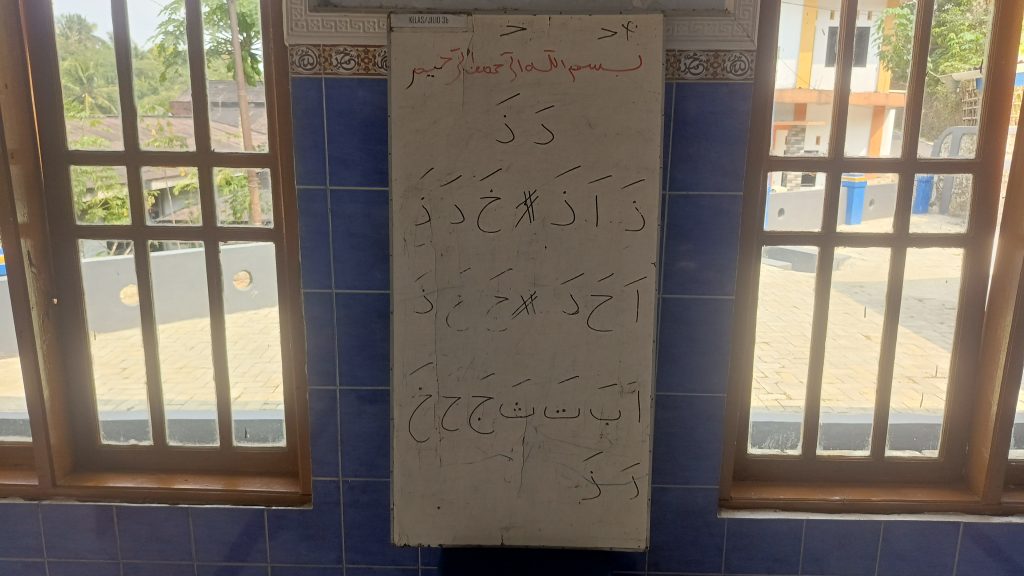 KELAS/JILID 3b
بسم الله الرحمن الرحيم
دَ ذَ
ذَ اَ ذَ # خَ دَ ذَ
اَ حَ دَ # خَ ذَ
اَ بَ تَ ثَ جَ حَ خَ
دَ ذَ